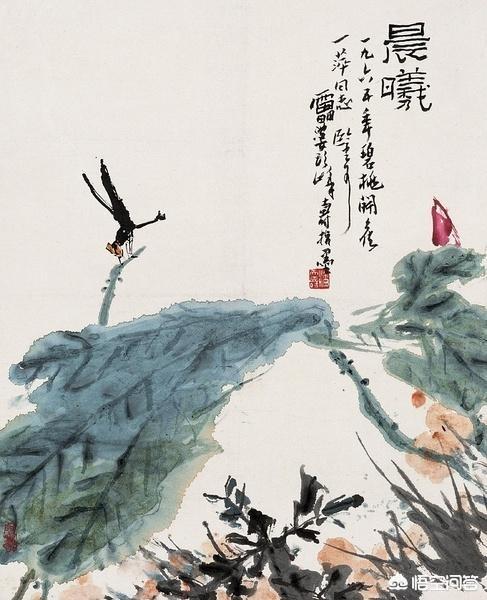 晨曦
一九六五年碧桃開候
一萍同志
雷婆頭峰壽指墨
悟空问答